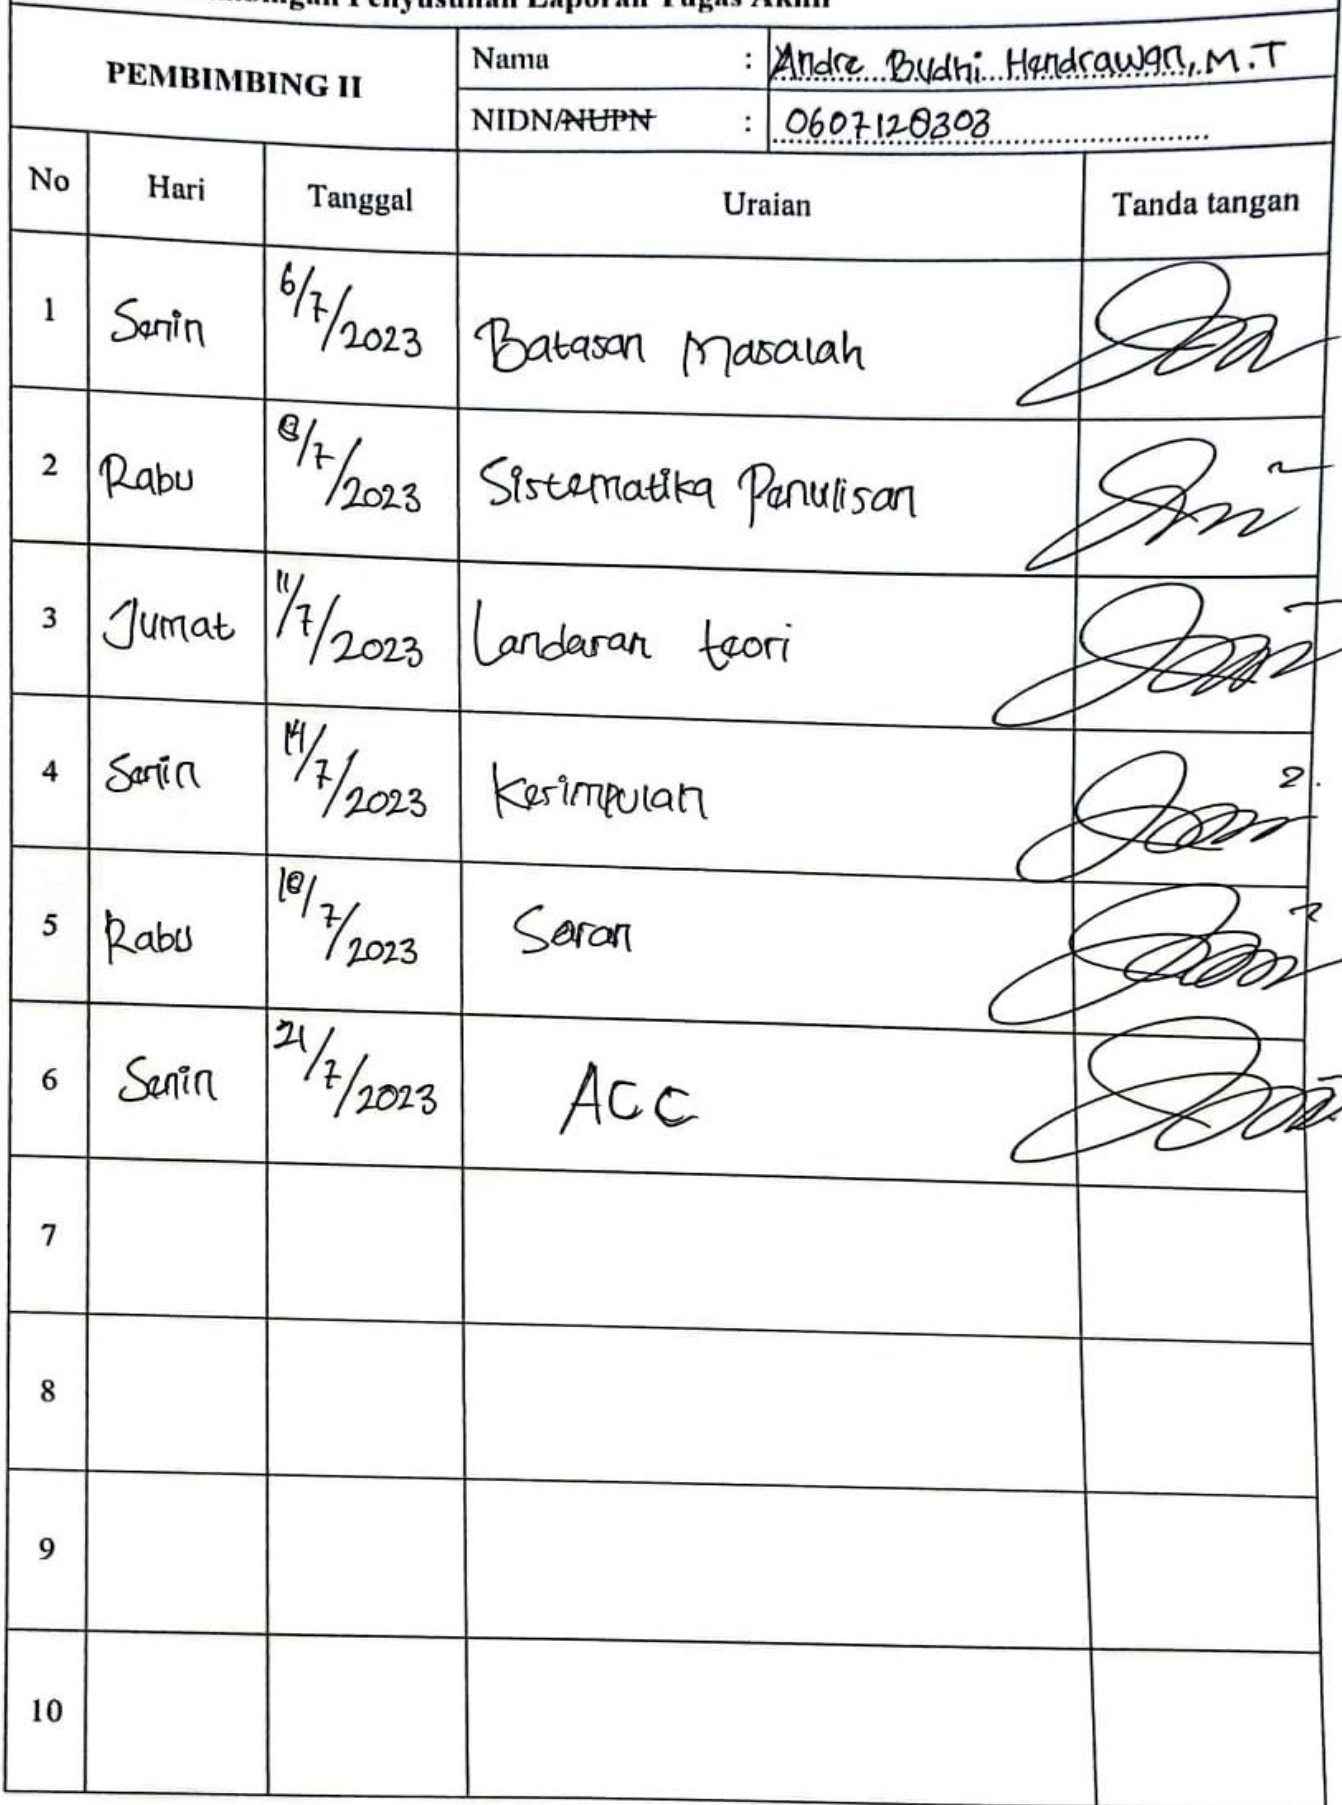 Penyusunan Laporan Tugas Akhir
PEMBIMBING II
Nama : Andre Budhi Hendrawan, M.T
NIDN/NUPN : 0607128303
No Hari Tanggal Uraian Tanda tangan
1 Senin 6/7/2023 Batasan Masalah
2 Rabu 8/7/2023 Sistematika Penulisan
3 Jumat 11/7/2023 Landasan teori
4 Senin 14/7/2023 Kesimpulan
5 Rabu 18/7/2023 Saran
6 Senin 21/7/2023 ACC
7
8
9
10